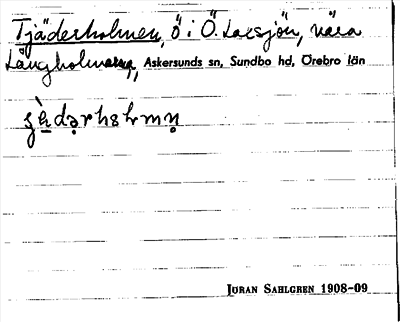 Tjäderholmen, ö i Ö. Laxsjön, nära
Långholmarna, Askersunds sn, Sundbo hd, Örebro län
JÖRAN SAHLGREN 1908-09